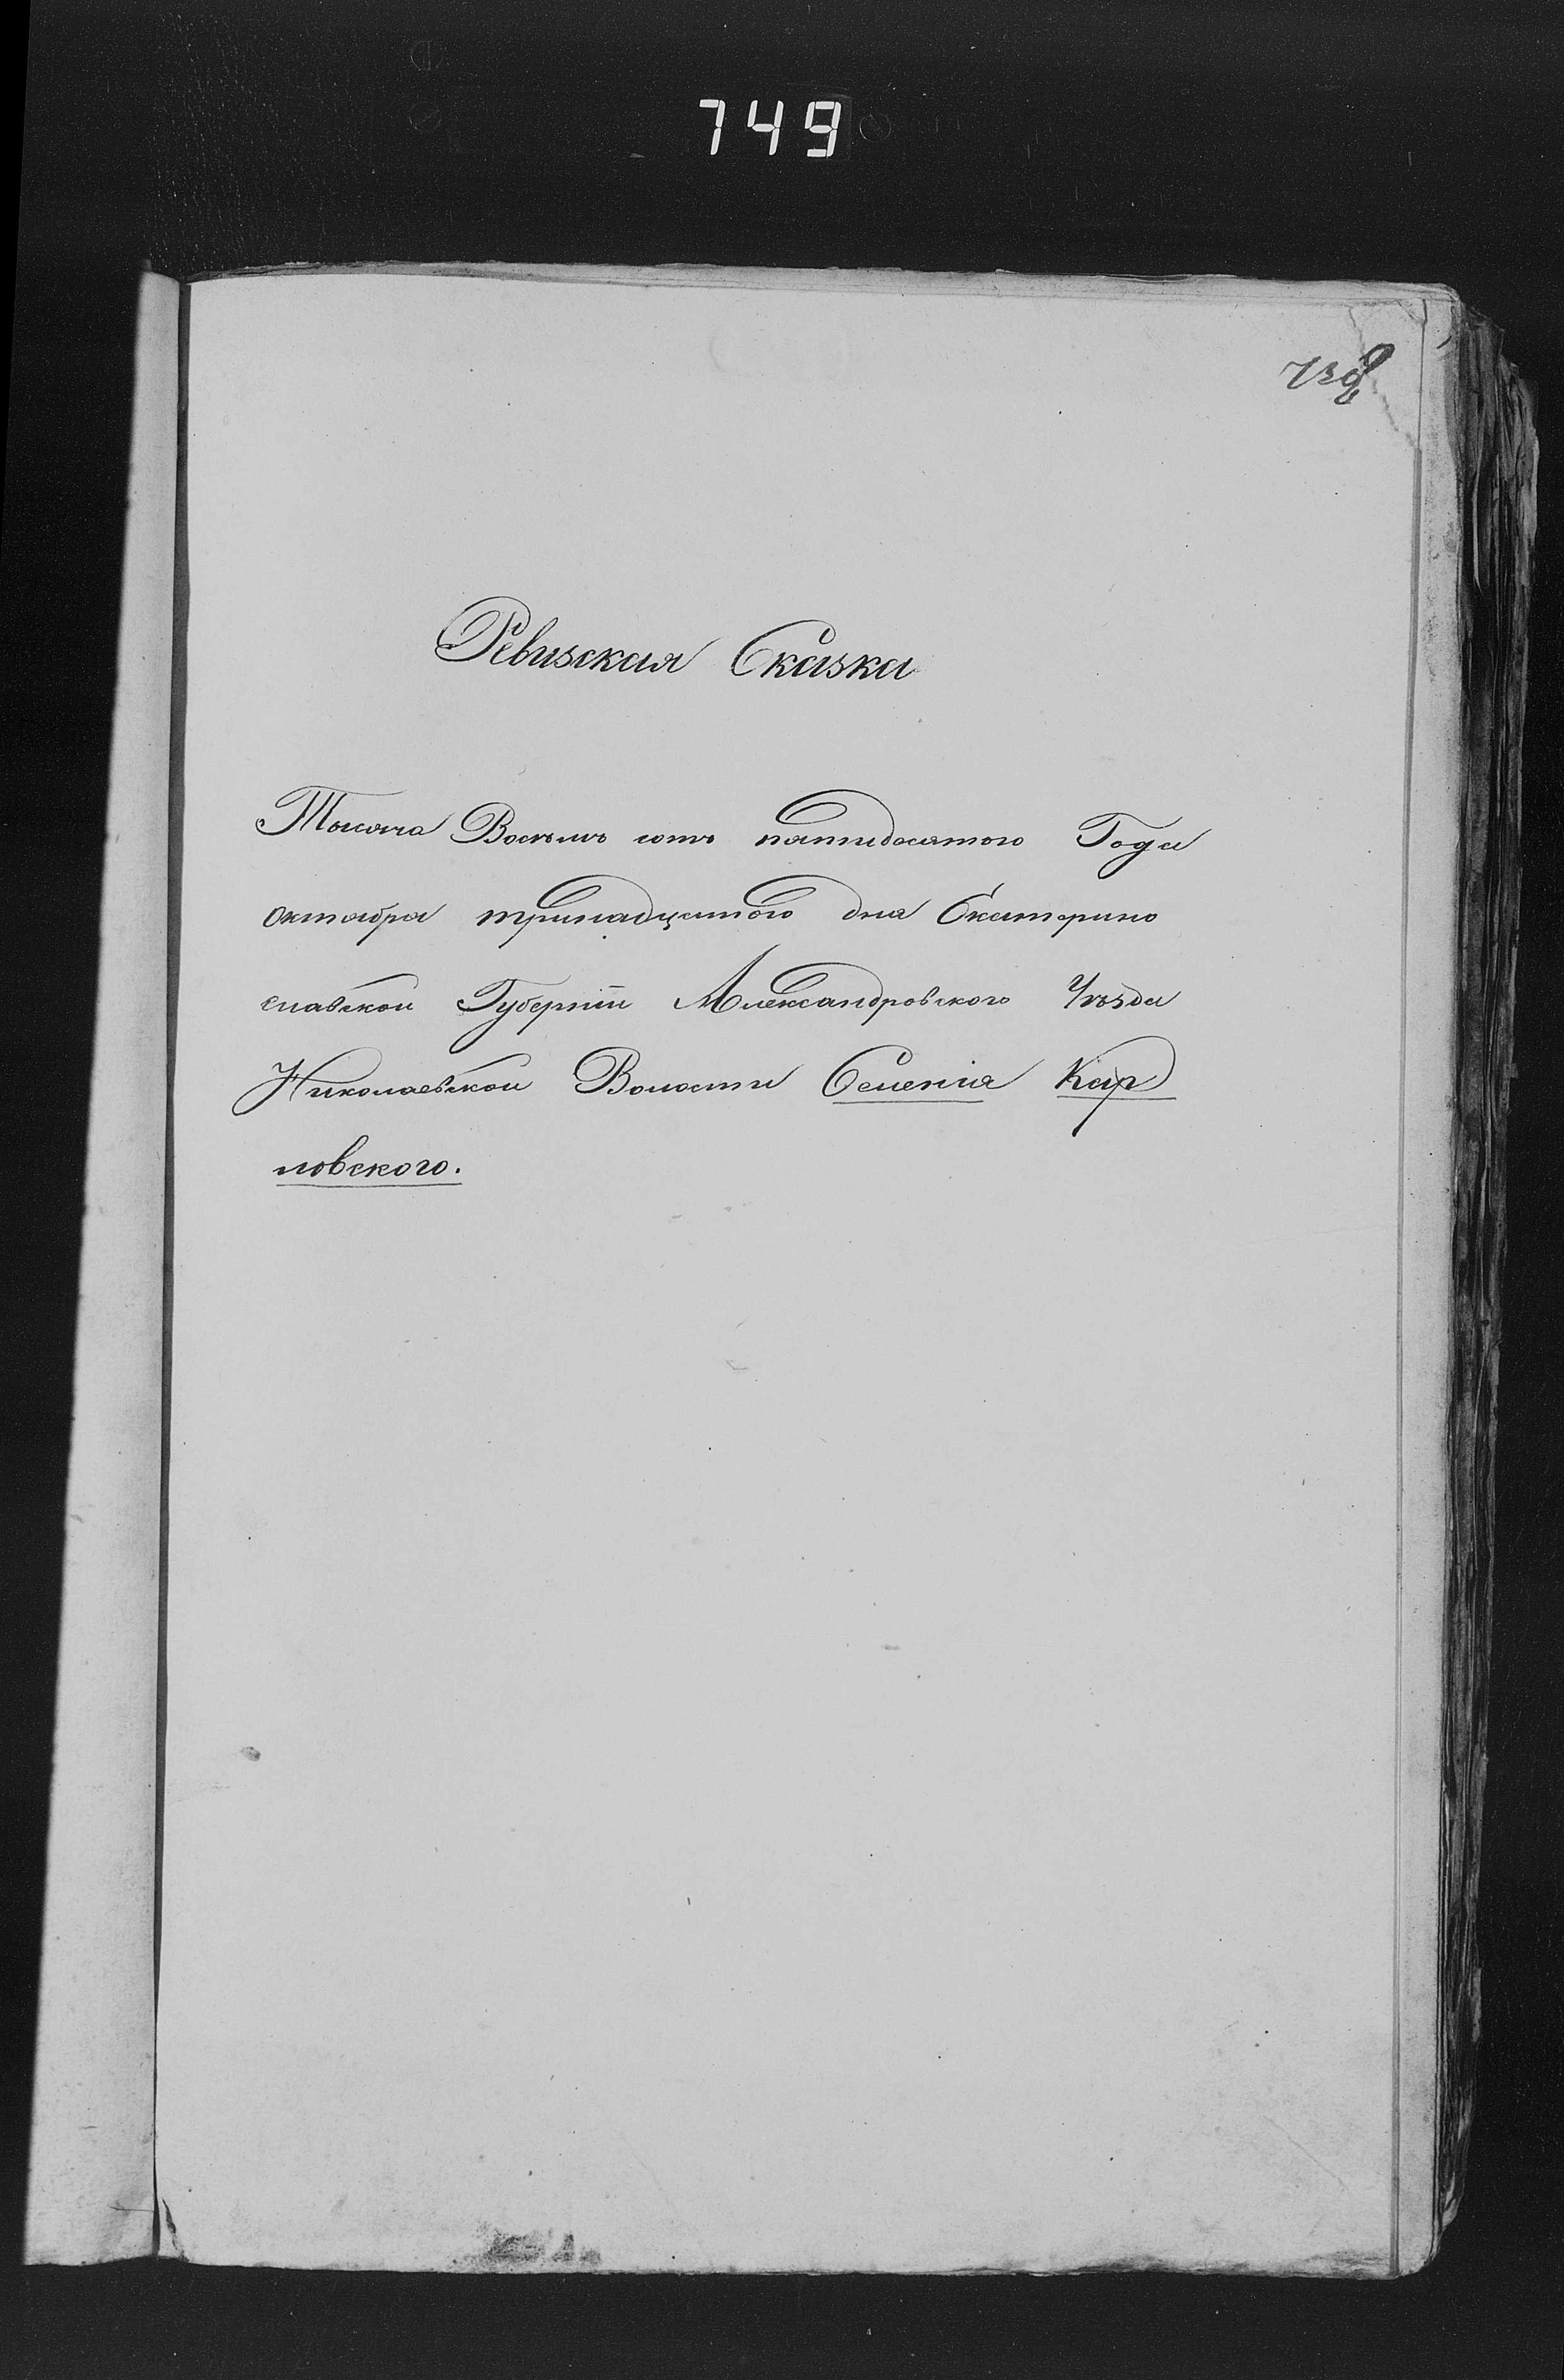 749
739
Ревизская Сказка
Тысяча Восемь сотъ пятидесятого Года
Октября тринадцатого дня Екатерино
славской Губерніи Александровского Уѣзда
Николаевской Волости Селенія Кар
ловского.